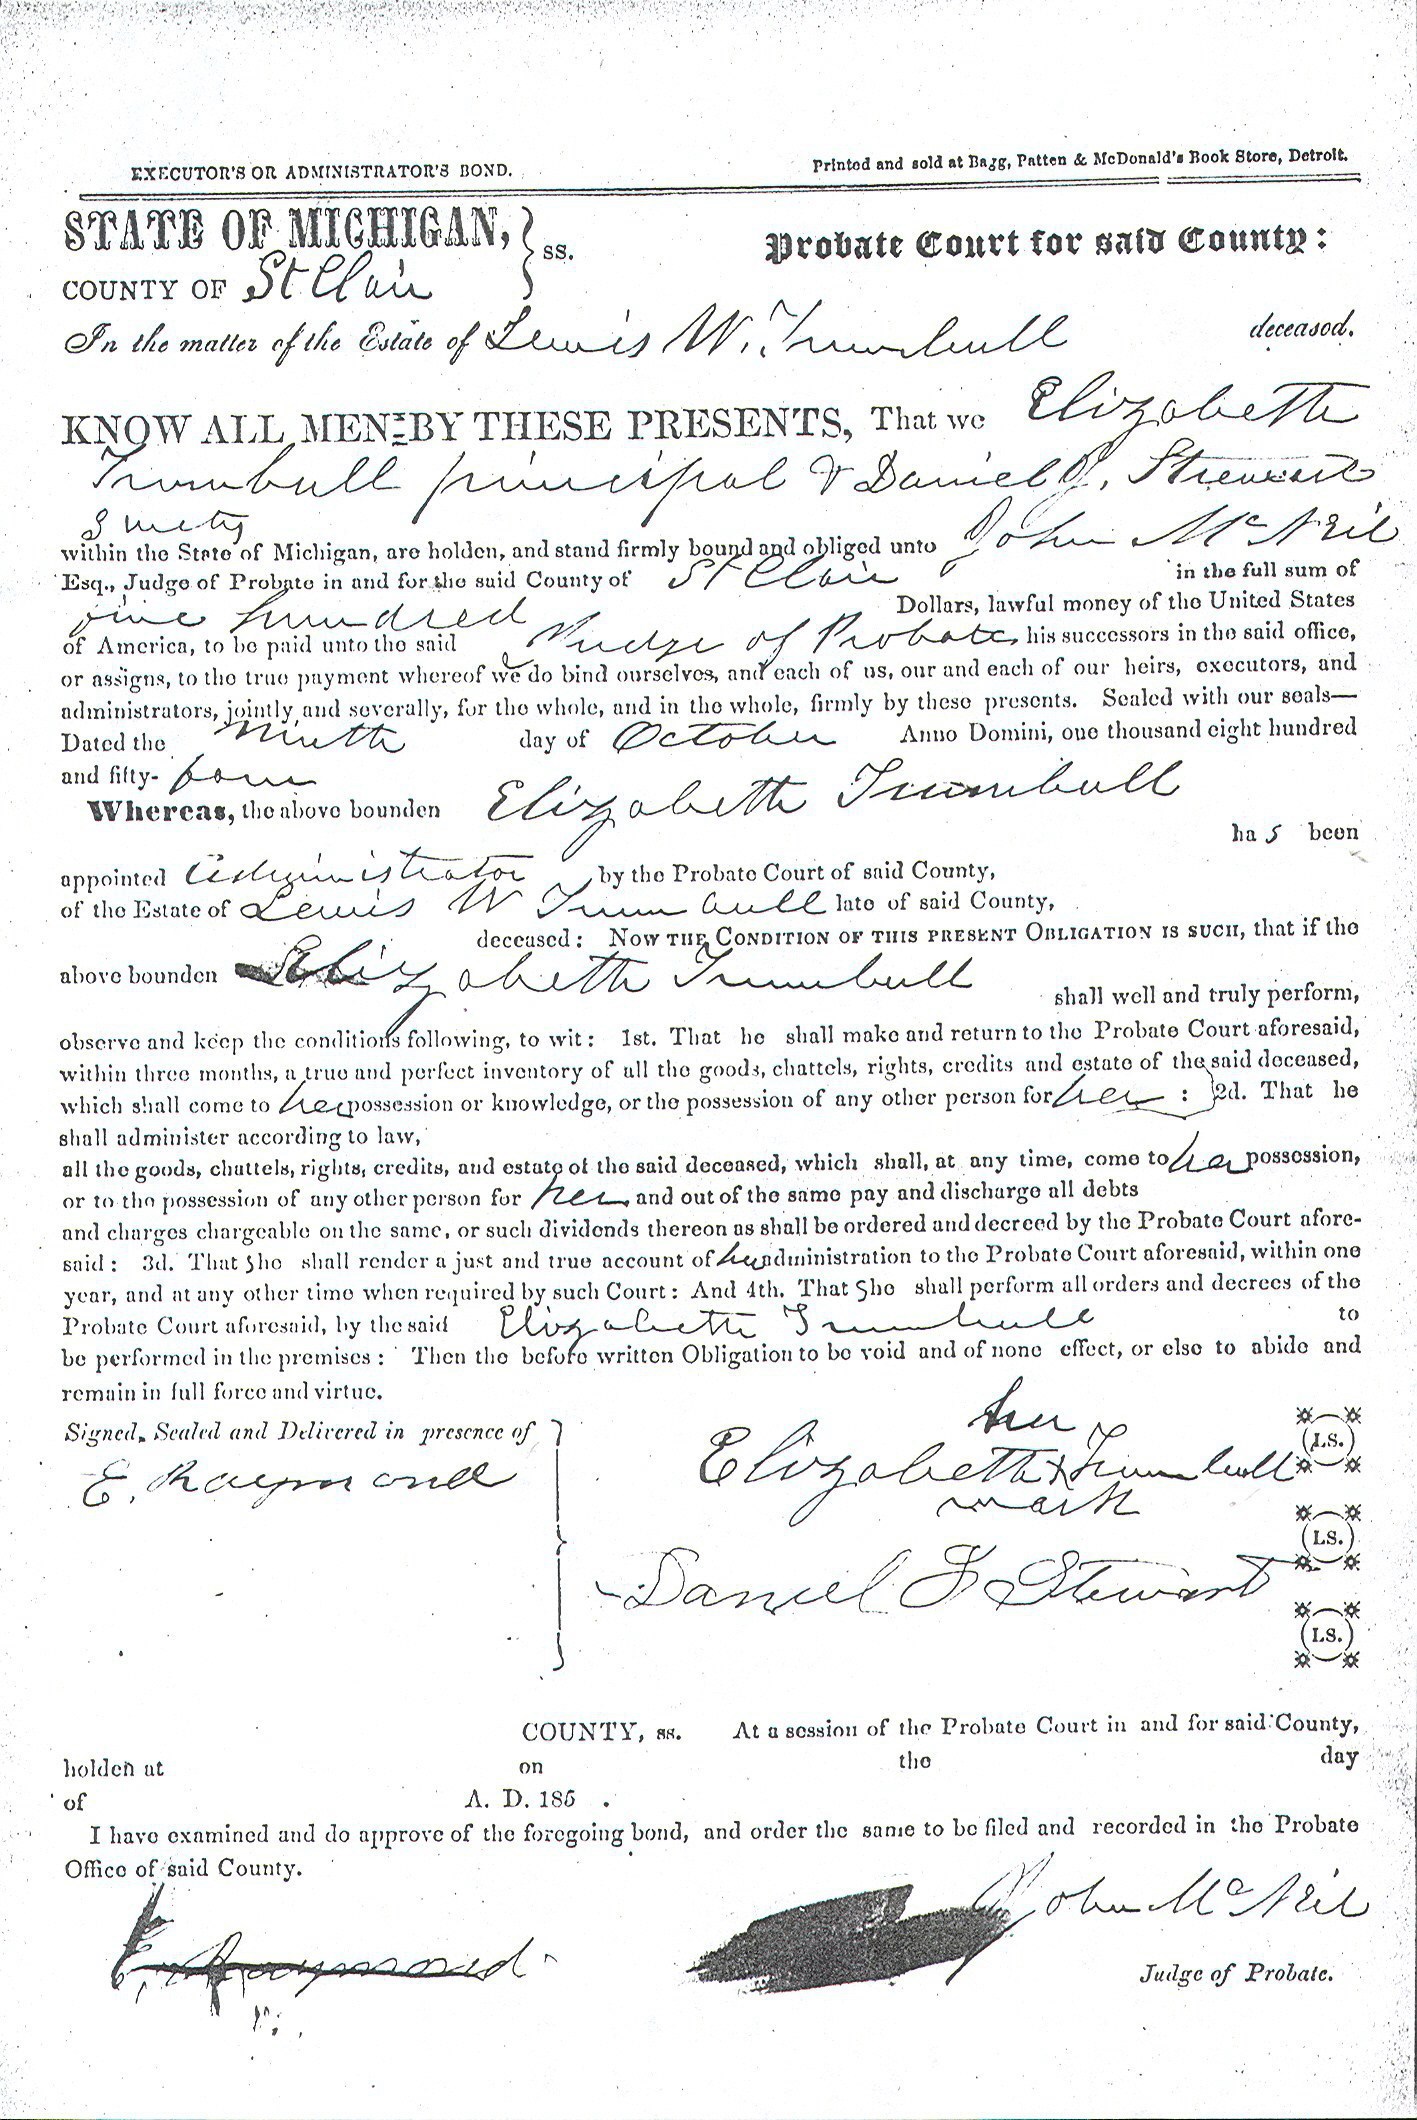 EXECUTOR'S OR ADMINISTRATOR'S BOND. Printed and sold at Bagg, Patten & McDonald's Book Store, Detroit.
STATE OF MICHIGAN, } ss. Probate Court for said County:
COUNTY OF St Clair
In the matter of the Estate of Lewis W. Trumbull deceased.
KNOW ALL MEN BY THESE PRESENTS, That we Elizabeth
Trumbull principal & Daniel J. Stewart
Surety
within the State of Michigan, are holden, and stand firmly bound and obliged unto John McNeil
Esq., Judge of Probate in and for the said County of St Clair in the full sum of
five hundred Dollars, lawful money of the United States
of America, to be paid unto the said Judge of Probate his successors in the said office,
or assigns, to the true payment whereof we do bind ourselves, and each of us, our and each of our heirs, executors, and
administrators, jointly and severally, for the whole, and in the whole, firmly by these presents. Sealed with our seals—
Dated the Ninth day of October Anno Domini, one thousand eight hundred
and fifty-four
Whereas, the above bounden Elizabeth Trumbull
has been
appointed Administrator by the Probate Court of said County,
of the Estate of Lewis W Trumbull late of said County,
deceased: NOW THE CONDITION OF THIS PRESENT OBLIGATION IS SUCH, that if the
above bounden Elizabeth Trumbull
shall well and truly perform,
observe and keep the conditions following, to wit: 1st. That he shall make and return to the Probate Court aforesaid,
within three months, a true and perfect inventory of all the goods, chattels, rights, credits and estate of the said deceased,
which shall come to her possession or knowledge, or the possession of any other person for her : 2d. That he
shall administer according to law,
all the goods, chattels, rights, credits, and estate of the said deceased, which shall, at any time, come to her possession,
or to the possession of any other person for her, and out of the same pay and discharge all debts
and charges chargeable on the same, or such dividends thereon as shall be ordered and decreed by the Probate Court afore-
said: 3d. That She shall render a just and true account of her administration to the Probate Court aforesaid, within one
year, and at any other time when required by such Court: And 4th. That She shall perform all orders and decrees of the
Probate Court aforesaid, by the said Elizabeth Trumbull to
be performed in the premises: Then the before written Obligation to be void and of none effect, or else to abide and
remain in full force and virtue.
Signed, Sealed and Delivered in presence of
her
E. Raymond Elizabeth X Trumbull (LS.)
mark
(LS.)
Daniel J Stewart
(LS.)
COUNTY, ss. At a session of the Probate Court in and for said County,
holden at on the day
of A. D. 185 .
I have examined and do approve of the foregoing bond, and order the same to be filed and recorded in the Probate
Office of said County.
John McNeil
E. Raymond
Judge of Probate.